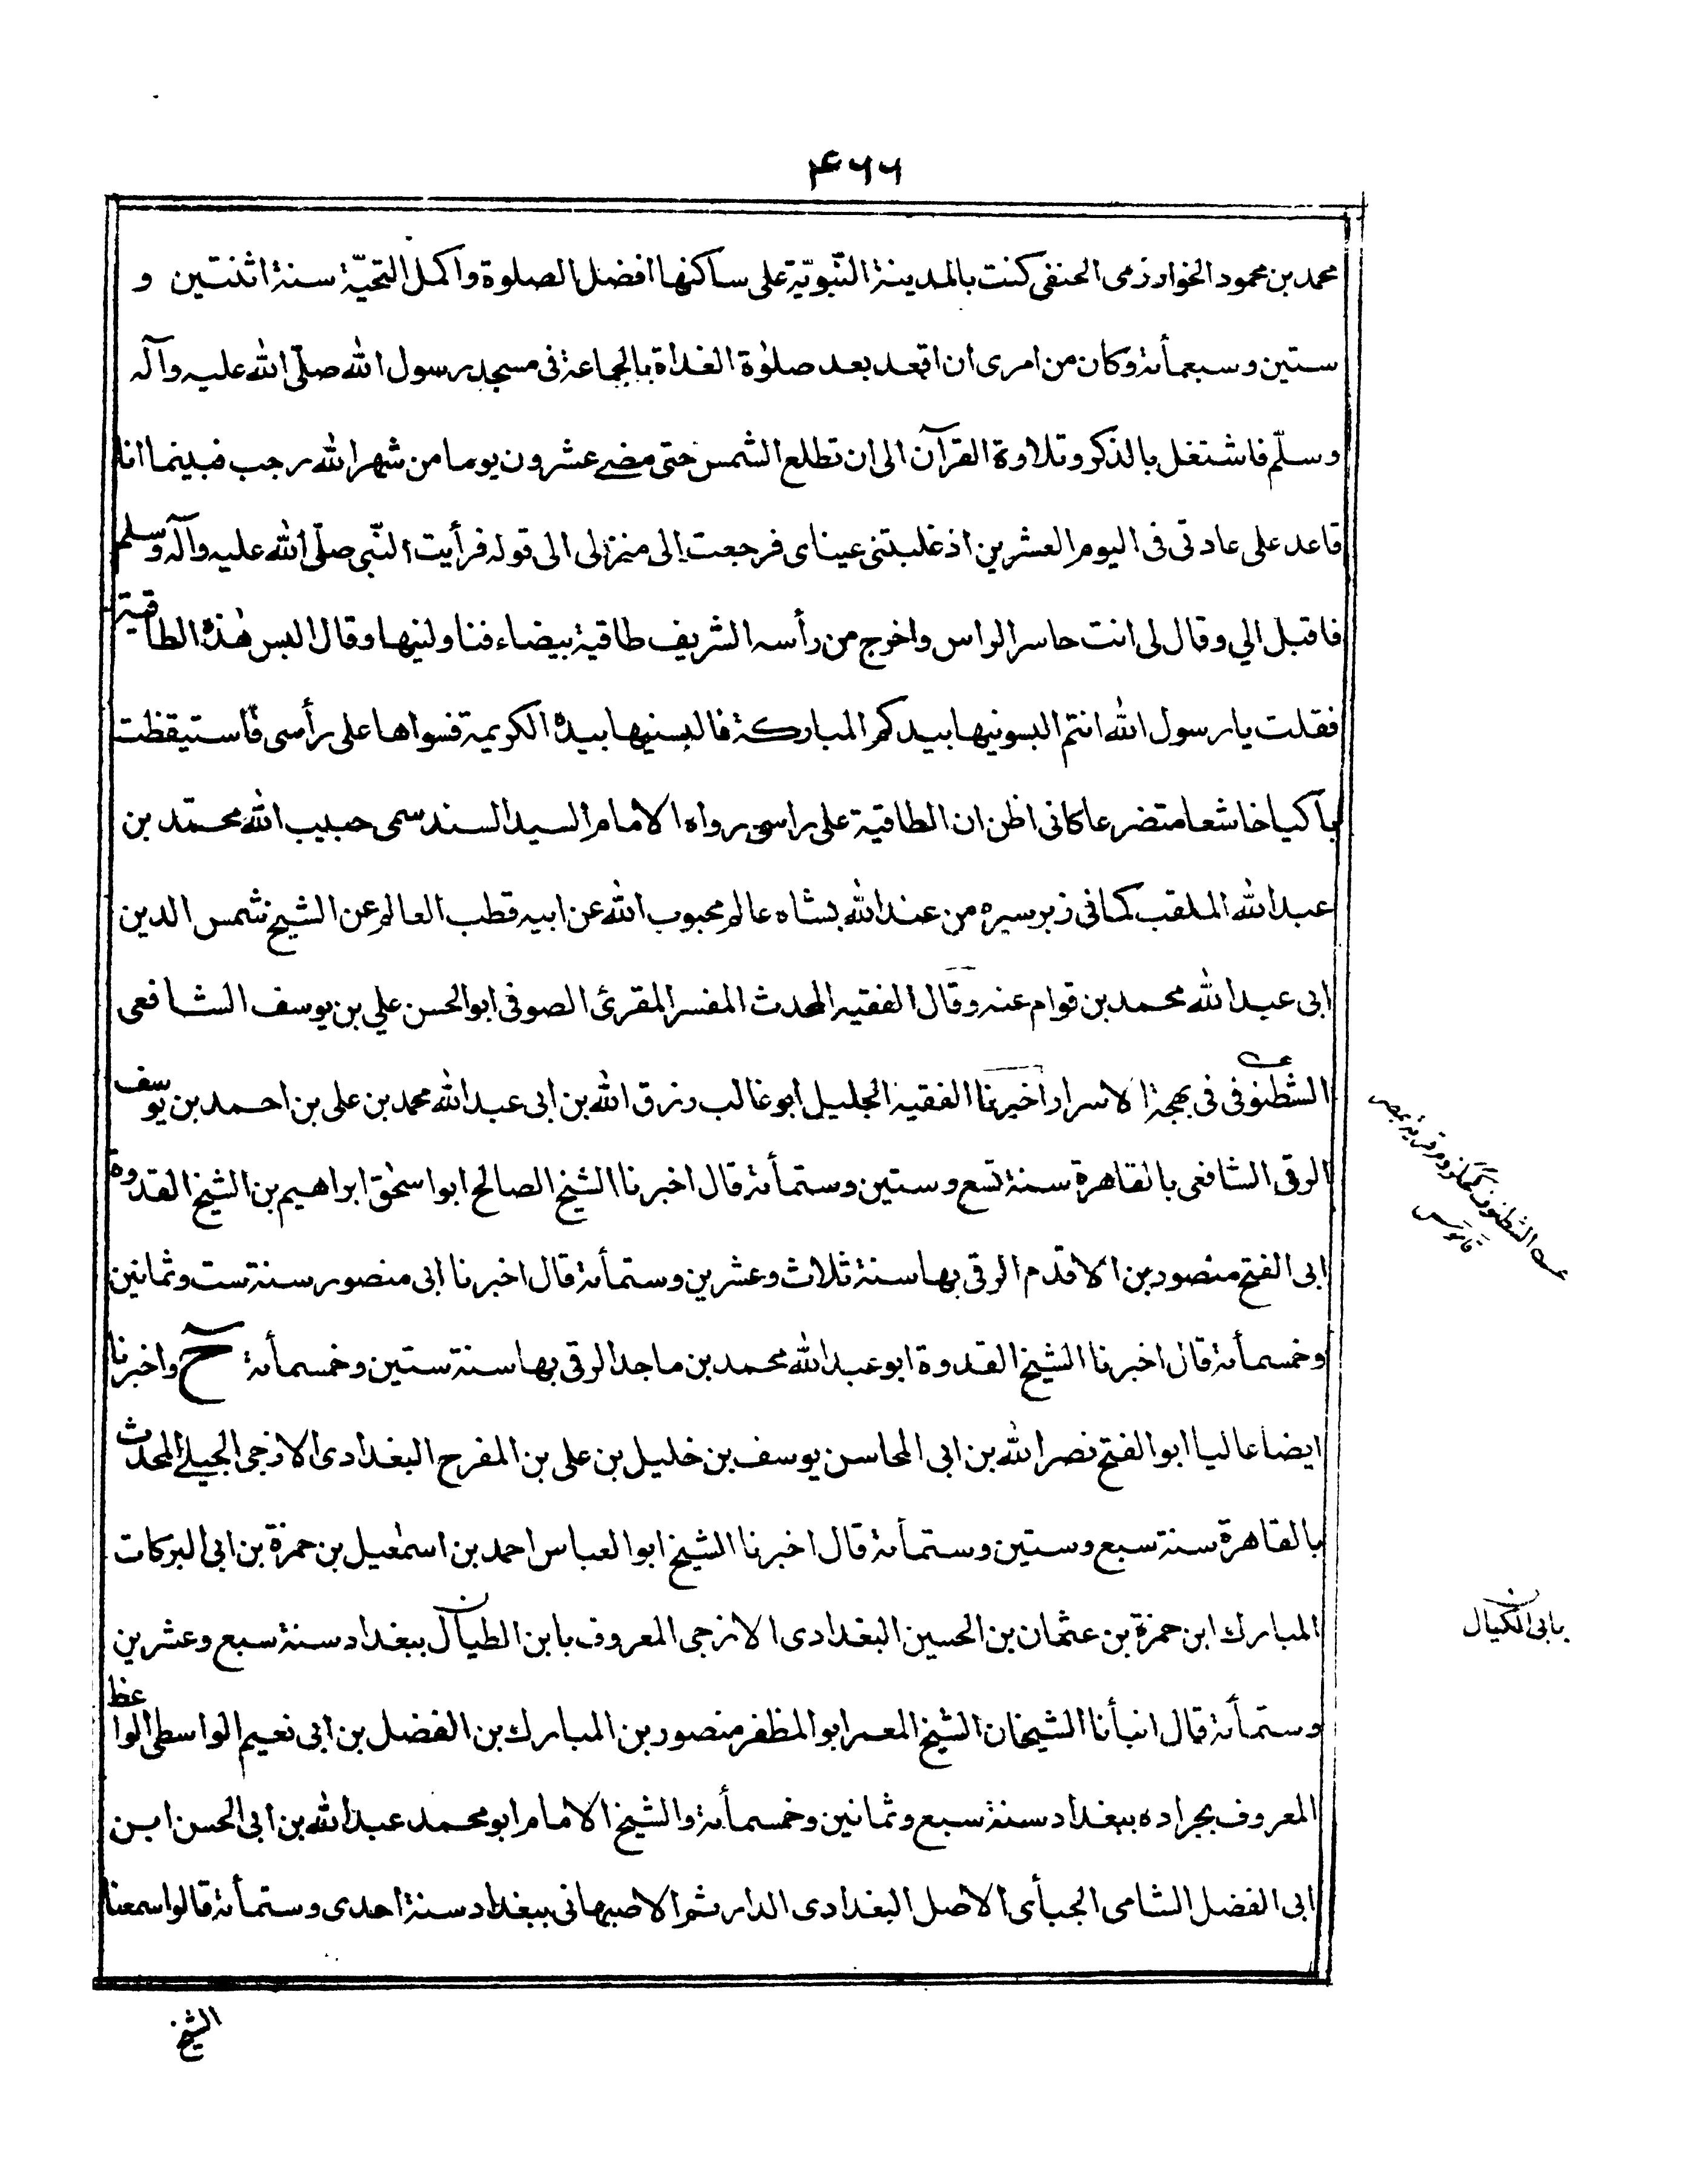 ۴۶۶
محمد بن محمود الخوارزمى الحنفى كنت بالمدينة النّبويّة على ساكنها افضل الصلوة واكمل التحيّة سنة اثنتين و
ستين وسبعمأئة وكان من امرى ان اقعد بعد صلوٰة الغداة بالجماعة فى مسجد رسول الله صلّى الله عليه وآله
وسلّم فاشتغل بالذكر وتلاوة القرآن الى ان تطلع الشمس حتى مضے عشرون يوما من شهر الله رجب فبينما انا
قاعد على عادتى فى اليوم العشرين اذ غلبتنى عيناى فرجعت الى منزلى الى قوله فرأيت النّبي صلّى الله عليه وآله وسلم
فاقبل الي وقال لى انت حاسر الراس واخرج من رأسه الشريف طاقية بيضاء فناولنيها وقال البس هٰذه الطاقية
فقلت يا رسول الله انتم البسونيها بيدكم المباركة فالبسنيها بيده الكريمة فسواها على رأسى فاستيقظت
باكيا خاشعا متضرعا كانى اظن ان الطاقية على راسى رواه الامام السيد السند سمى حبيب الله محمّد بن
عبد الله الملقب كما فى زبر سيره من عند الله بشاه عالم محبوب الله عن ابيه قطب العالم عن الشيخ شمس الدين
ابى عبد الله محمد بن قوام عنه وقال الفقيه المحدث المفسر المقرئ الصوفى ابو الحسن علي بن يوسف الشافعى
الشطنوفى فى بهجة الاسرار اخبرنا الفقيه الجليل ابو غالب رزق الله بن ابى عبد الله محمد بن على بن احمد بن يوسف
الرقى الشافعى بالقاهرة سنة تسع وستين وستمأئة قال اخبرنا الشيخ الصالح ابو اسحٰق ابراهيم بن الشيخ القدوة
ابى الفتح منصور بن الاقدم الرقى بها سنة ثلاث وعشرين وستمأئة قال اخبرنا ابى منصور سنة ست وثمانين
وخمسمأئة قال اخبرنا الشيخ القدوة ابو عبد الله محمد بن ماجد الرقى بها سنة ستين وخمسمأئة ح واخبرنا
ايضا عاليا ابو الفتح نصر الله بن ابى المحاسن يوسف بن خليل بن على بن المفرح البغدادى الازجى الجيلے المحدث
بالقاهرة سنة سبع وستين وستمأئة قال اخبرنا الشيخ ابو العباس احمد بن اسمٰعيل بن حمزة بن ابى البركات
المبارك ابن حمزة بن عثمان بن الحسين البغدادى الازجى المعروف بابن الطيال ببغداد سنة سبع وعشرين
وستمأئة قال انبأنا الشيخان الشيخ المعمر ابو المظفر منصور بن المبارك بن الفضل بن ابى نعيم الواسطى الواعظ
المعروف بجراده ببغداد سنة سبع وثمانين وخمسمأئة والشيخ الامام ابو محمد عبد الله بن ابى الحسن ابن
ابى الفضل الشامى الجبأى الاصل البغدادى الدار ثم الاصبهانى ببغداد سنة احدى وستمأئة قالوا سمعنا
الشيخ
عه الشطنوف قرية بمصر
قاموس
بابى الكيال